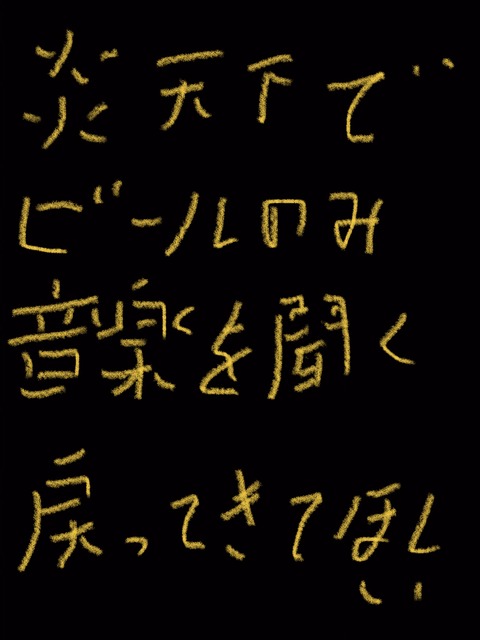 炎天下で
ビールのみ
音楽を聞く
戻ってきてほし
い